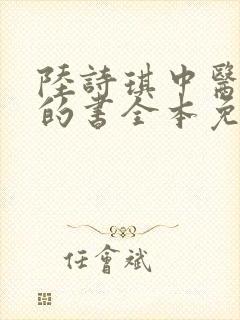 陸詩琪中醫
的書全本免
任會斌